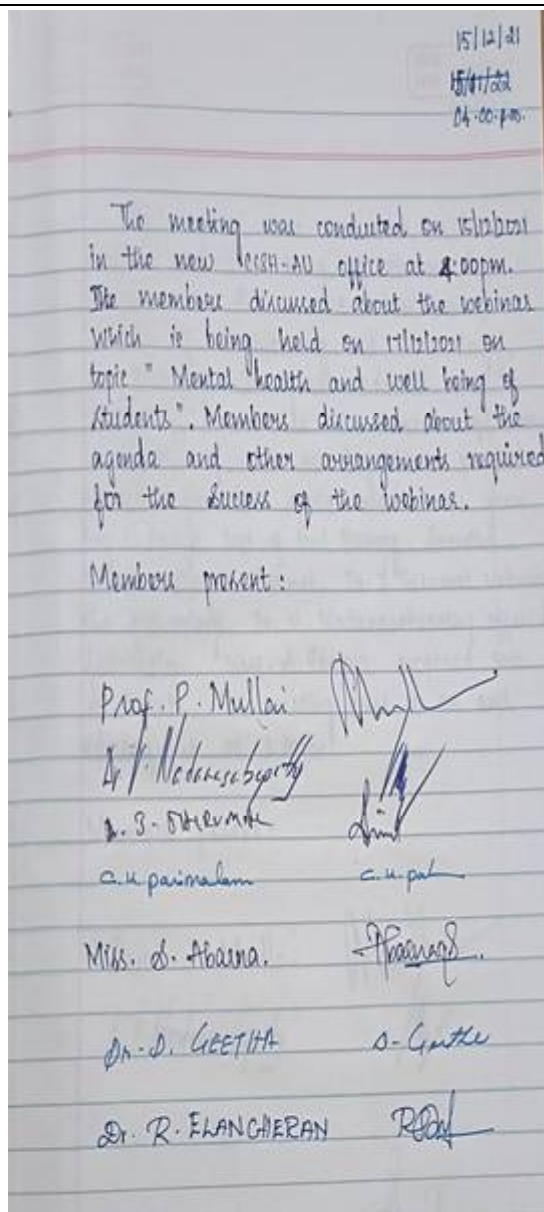 15/12/21
15/01/22
04.00.p.m.
The meeting was conducted on 15/12/2021
in the new CCSH-AU office at 4:00pm.
The members discussed about the webinar
which is being held on 17/12/2021 on
topic " Mental health and well being of
students". Members discussed about the
agenda and other arrangements required
for the success of the webinar.
Members present :
Prof. P. Mullai
C.K parimalam
Miss. S. Abarna.
Dr. D. GEETHA D- Geetha
Dr. R. ELANCHERAN